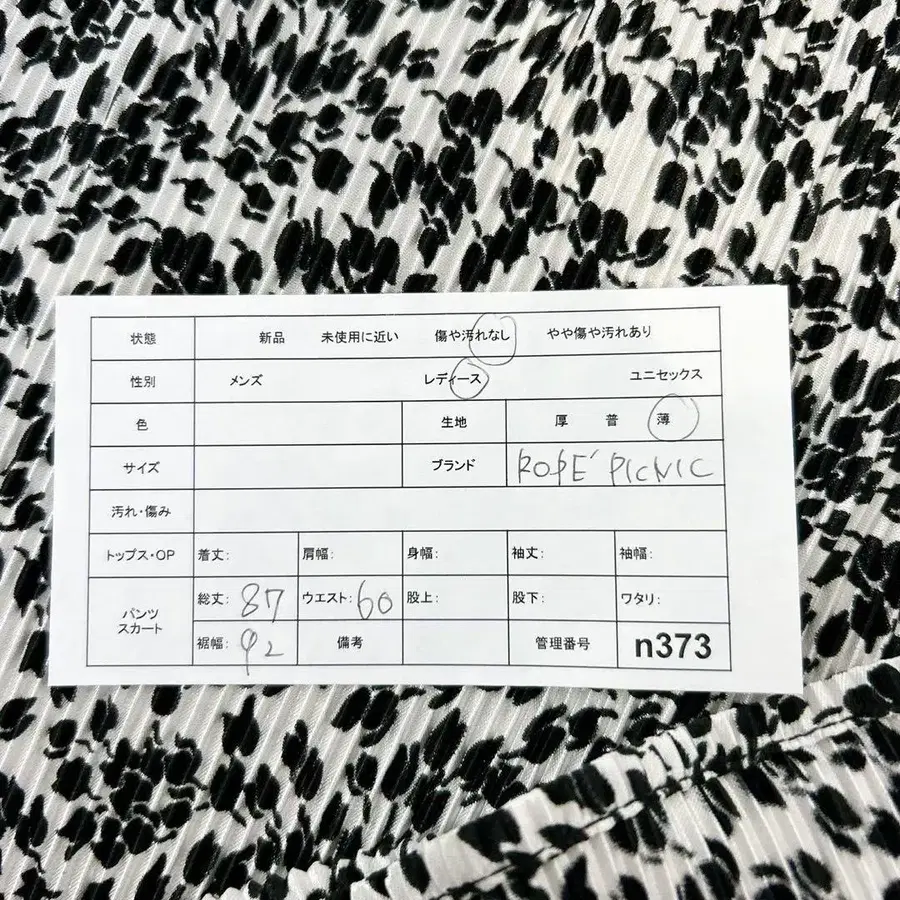 状態 新品 未使用に近い 傷や汚れなし やや傷や汚れあり
性別 メンズ レディース ユニセックス
色 生地 厚 普 薄
サイズ ブランド ROPE' PICNIC
汚れ・傷み
トップス・OP 着丈: 肩幅: 身幅: 袖丈: 袖幅:
パンツ
スカート
総丈: 87 ウエスト: 60 股上: 股下: ワタリ:
裾幅: 92 備考 管理番号 n373